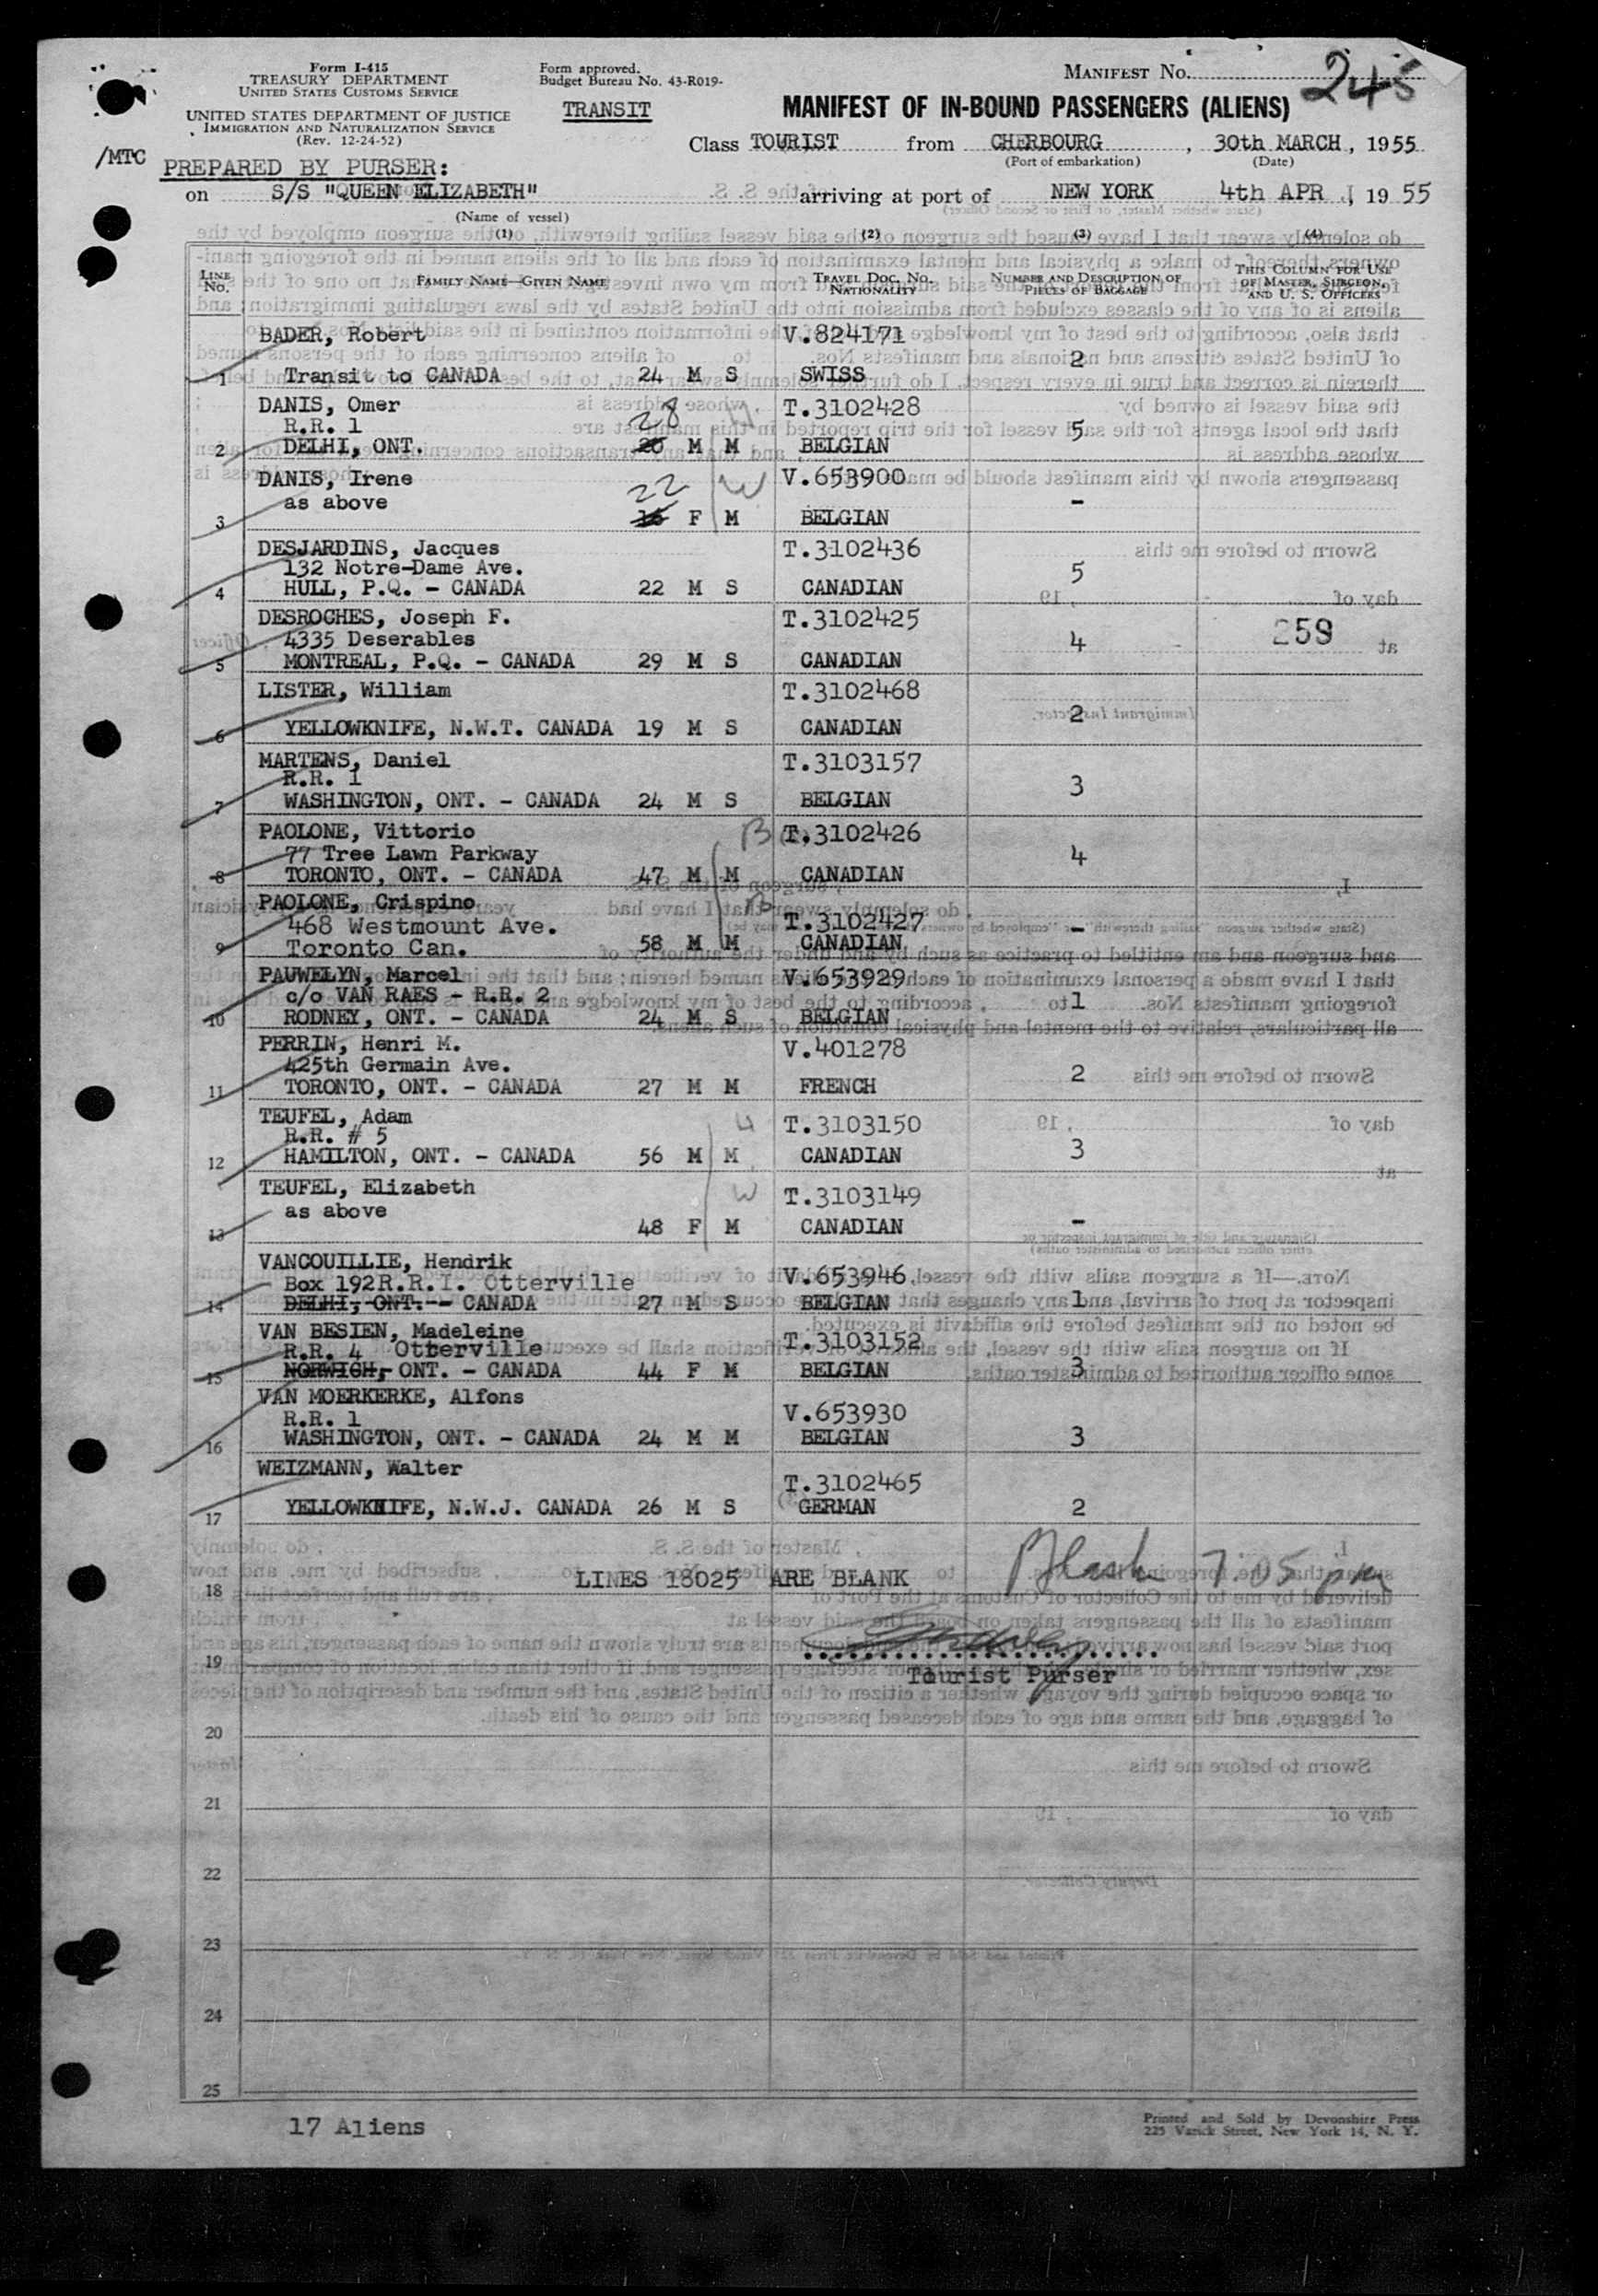 Form I-415
TREASURY DEPARTMENT
UNITED STATES CUSTOMS SERVICE
UNITED STATES DEPARTMENT OF JUSTICE
IMMIGRATION AND NATURALIZATION SERVICE
(Rev. 12-24-52)
Form approved.
Budget Bureau No. 43-R019-
TRANSIT
MANIFEST No. 245
MANIFEST OF IN-BOUND PASSENGERS (ALIENS)
/MTC
PREPARED BY PURSER:
Class TOURIST from CHERBOURG, 30th MARCH, 1955
(Port of embarkation) (Date)
on S/S "QUEEN ELIZABETH" arriving at port of NEW YORK 4th APR 19 55
(Name of vessel)
(1) (2) (3) (4)
LINE No. FAMILY NAME—GIVEN NAME TRAVEL DOC. No. NATIONALITY NUMBER AND DESCRIPTION OF PIECES OF BAGGAGE THIS COLUMN FOR USE OF MASTER, SURGEON, AND U. S. OFFICERS
BADER, Robert V.824171
2
1 Transit to CANADA 24 M S SWISS
DANIS, Omer 28 T.3102428
R.R. 1 5
2 DELHI, ONT. 20 M M BELGIAN
DANIS, Irene 22 W V.653900
as above -
3 F M BELGIAN
DESJARDINS, Jacques T.3102436
132 Notre-Dame Ave. 5
4 HULL, P.Q. - CANADA 22 M S CANADIAN
DESROCHES, Joseph F. T.3102425
4335 Deserables 4 259
5 MONTREAL, P.Q. - CANADA 29 M S CANADIAN
LISTER, William T.3102468
2
6 YELLOWKNIFE, N.W.T. CANADA 19 M S CANADIAN
MARTENS, Daniel T.3103157
R.R. 1 3
7 WASHINGTON, ONT. - CANADA 24 M S BELGIAN
PAOLONE, Vittorio B T.3102426
77 Tree Lawn Parkway 4
8 TORONTO, ONT. - CANADA 47 M M CANADIAN
PAOLONE, Crispino B T.3102427
468 Westmount Ave. -
9 Toronto Can. 58 M M CANADIAN
PAUWELYN, Marcel V.653929
c/o VAN RAES - R.R. 2 1
10 RODNEY, ONT. - CANADA 24 M S BELGIAN
PERRIN, Henri M. V.401278
425th Germain Ave. 2
11 TORONTO, ONT. - CANADA 27 M M FRENCH
TEUFEL, Adam H T.3103150
R.R. # 5 3
12 HAMILTON, ONT. - CANADA 56 M M CANADIAN
TEUFEL, Elizabeth W T.3103149
as above -
13 48 F M CANADIAN
VANCOUILLIE, Hendrik V.653946
Box 192R.R.I. Otterville 1
14 DELHI, ONT. - CANADA 27 M S BELGIAN
VAN BESIEN, Madeleine T.3103152
R.R. 4 Otterville 3
15 NORWICH, ONT. - CANADA 44 F M BELGIAN
VAN MOERKERKE, Alfons V.653930
R.R. 1 3
16 WASHINGTON, ONT. - CANADA 24 M M BELGIAN
WEIZMANN, Walter T.3102465
17 YELLOWKNIFE, N.W.J. CANADA 26 M S GERMAN 2
18 LINES 18025 ARE BLANK 7:05 pm
19
Tourist Purser
20
21
22
23
24
25
17 Aliens
Printed and Sold by Devonshire Press
225 Varick Street, New York 14, N. Y.